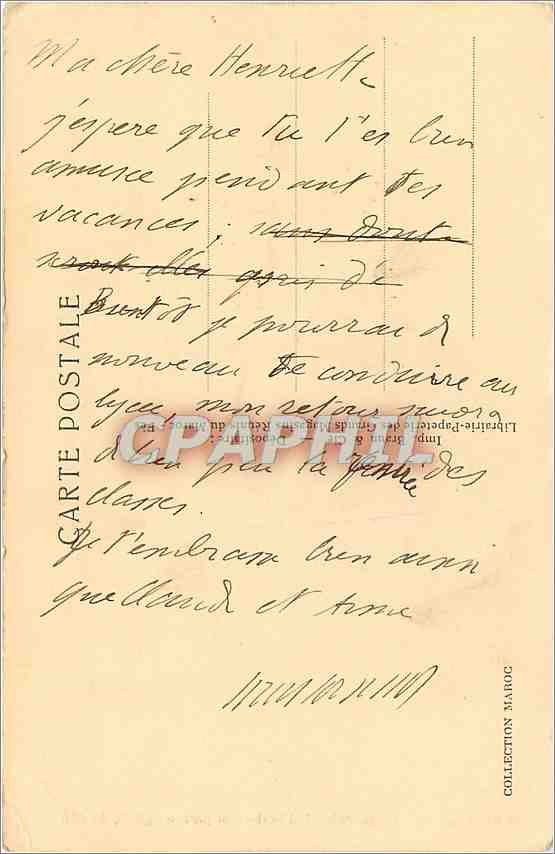 Ma chère Henriette
j'espere que tu t'es bien
amusée pendant tes
vacances ; sans doute
Bientôt je pourrai de
nouveau te conduire au
lycée, mon retour
d'un peu la rentrée des
classes.
Je t'embrasse bien ainsi
que Claude et
CARTE POSTALE
CPAPHIL
Imp. Braun & Cie - Dépositaire :
Librairie-Papeterie des Grands Magasins Réunis du Maroc - Fès
COLLECTION MAROC